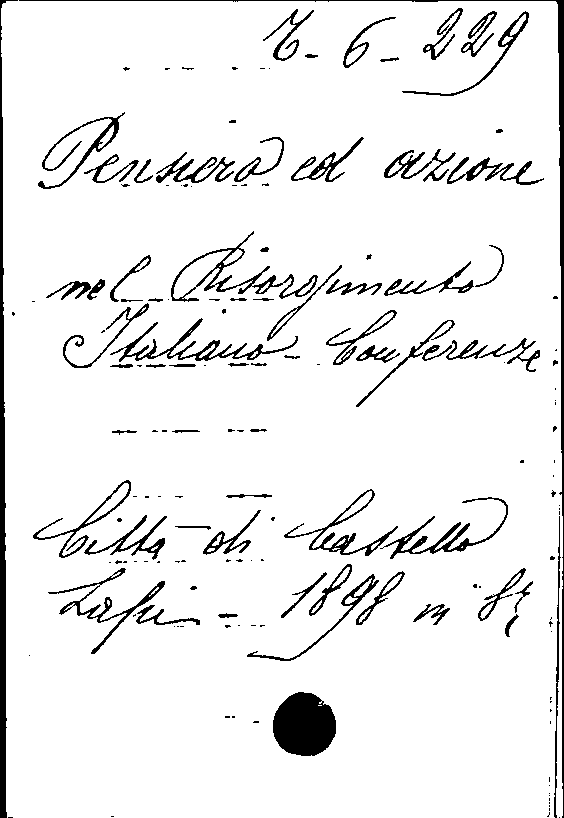 7-6-229
Pensiero ed azione
nel Risorgimento
Italiano - Conferenze.
Città di Castello
Lapi - 1898 in 8º